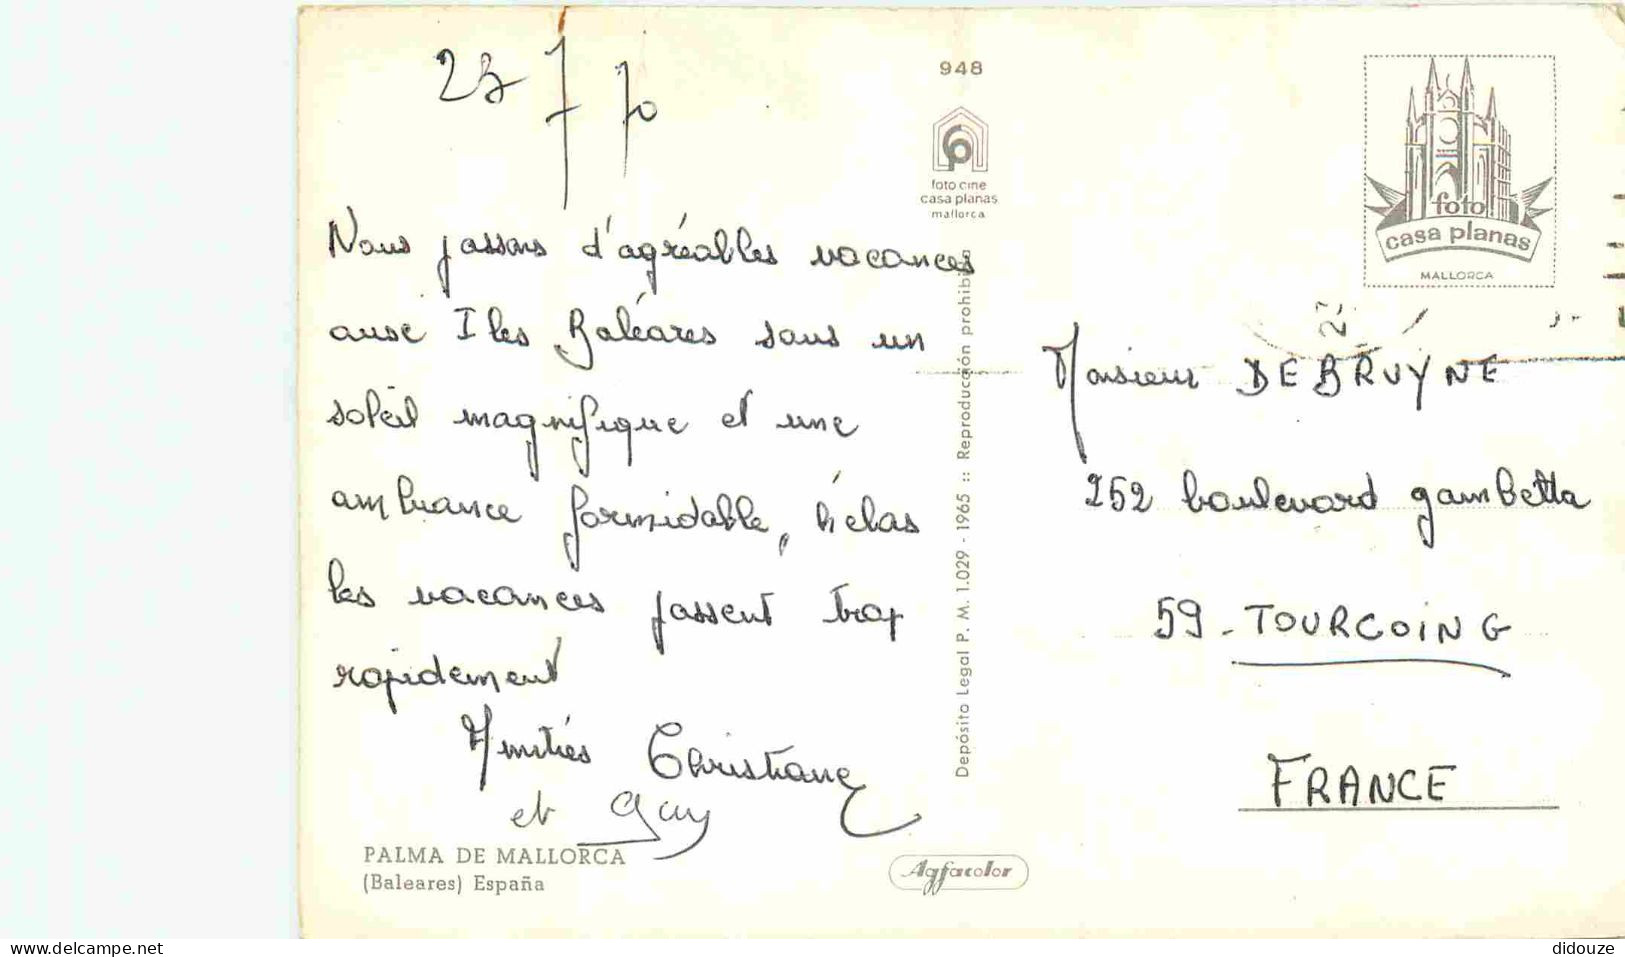 23 7 70
Nous passons d'agréables vacances
aux Iles Baléares sous un
soleil magnifique et une
ambiance formidable, hélas
les vacances passent trop
rapidement
Amitiés Christiane
et Guy
PALMA DE MALLORCA
(Baleares) España
948
foto cine
casa planas
mallorca
Depósito Legal P. M. 1.029 - 1965 :: Reproducción prohibida
Agfacolor
foto
casa planas
MALLORCA
Monsieur DEBRUYNE
252 boulevard gambetta
59 - TOURCOING
FRANCE
www.delcampe.net
didouze